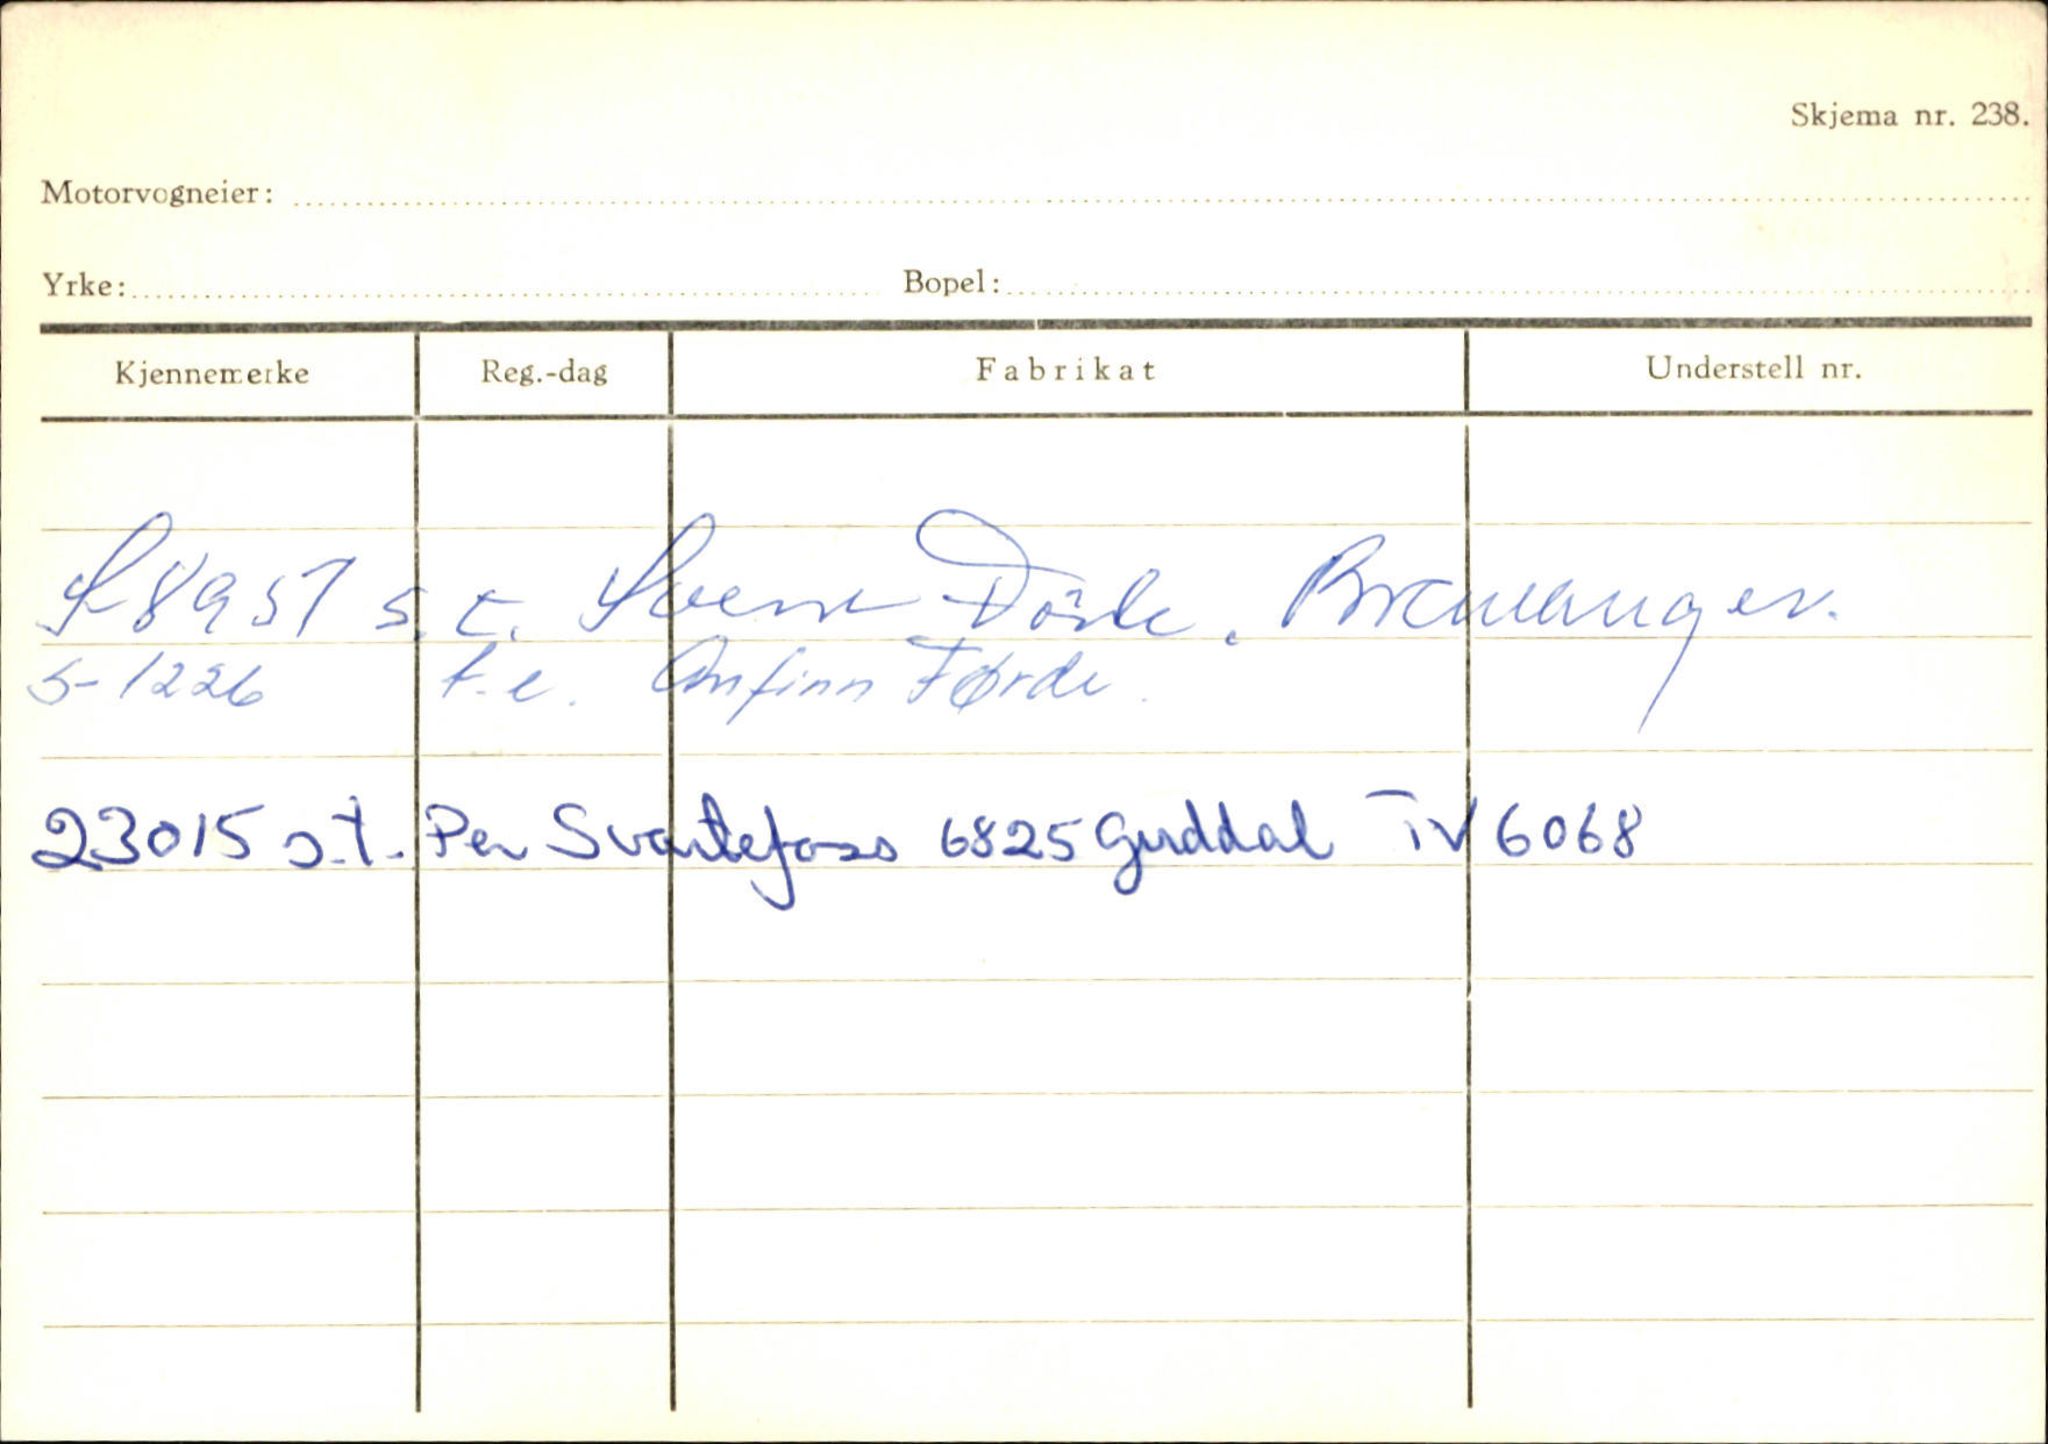 Skjema nr. 238.
Motorvogneier:
Yrke: Bopel:
Kjennemerke Reg.-dag Fabrikat Understell nr.
S 8957 s.t. Svenn Bremanger.
S-1226 t.e. Anfinn Førde.
23015 s.t. Per Svartefoss 6825 Guddal TV 6068